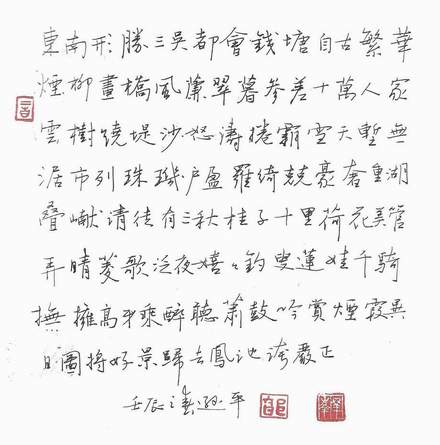 東南形勝三吳都會錢塘自古繁華
煙柳畫橋風簾翠幕參差十萬人家
雲樹繞堤沙怒濤捲霜雪天塹無
涯市列珠璣戶盈羅綺競豪奢重湖
疊巘清佳有三秋桂子十里荷花羌管
弄晴菱歌泛夜嬉々釣叟蓮娃千騎
撫擁高牙乘醉聽簫鼓吟賞煙霞異
日圖將好景歸去鳳池誇嚴正
壬辰 平